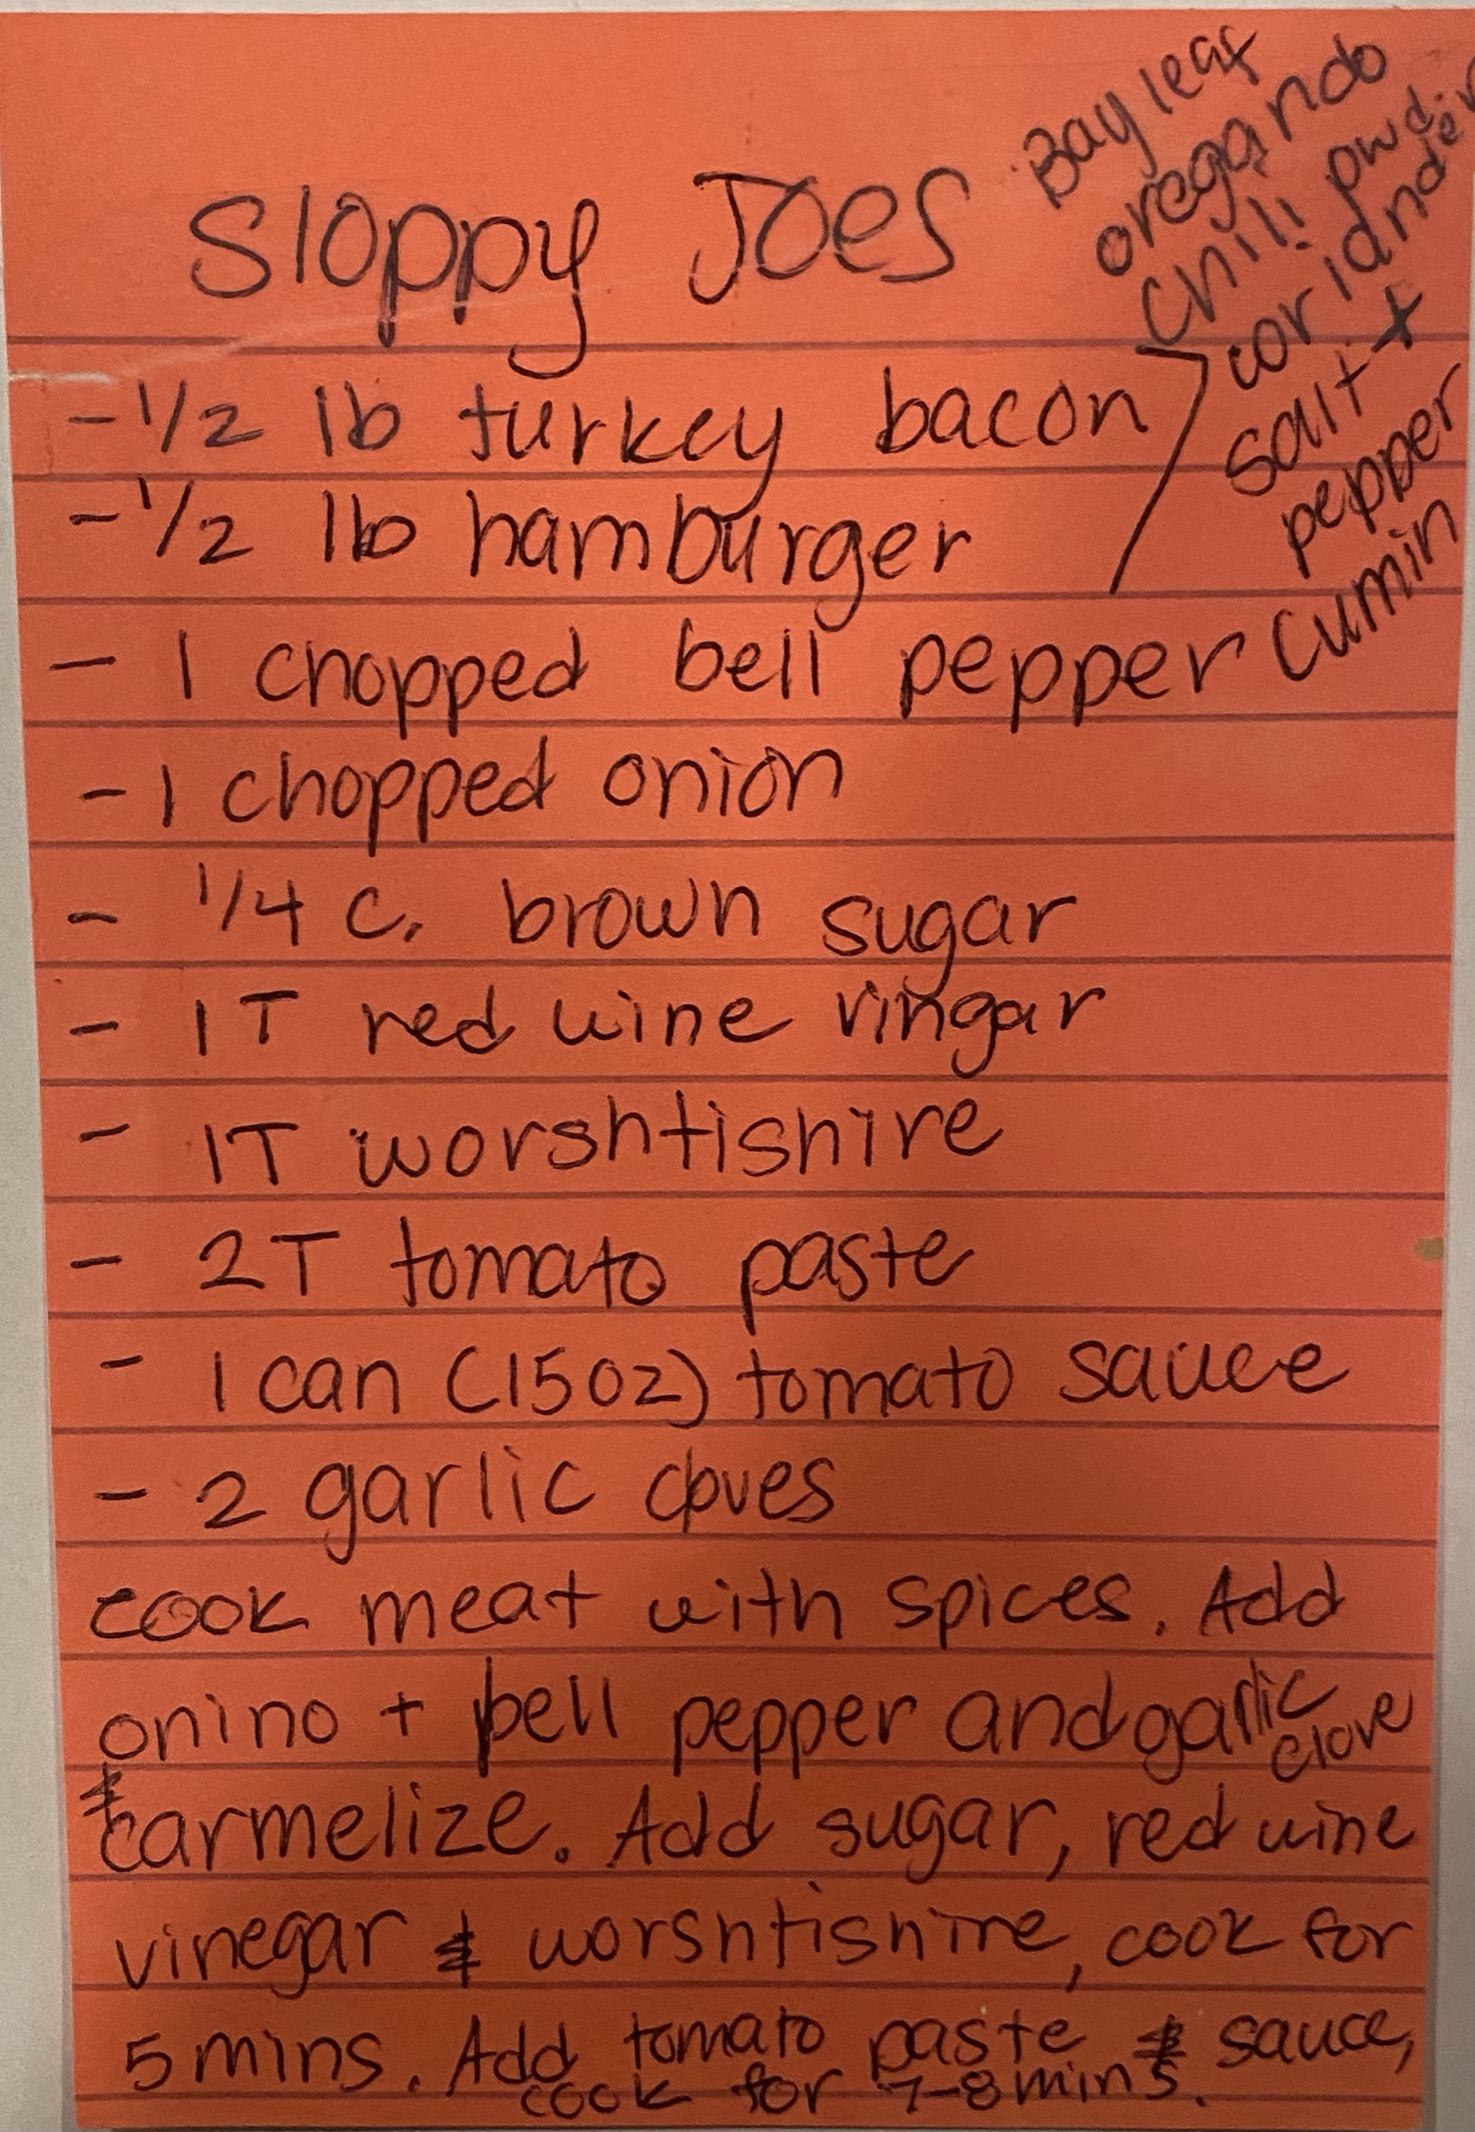 Sloppy Joes
Bay leaf
oregando
chili pwd.
coridnder
salt +
pepper
cumin
- 1/2 lb turkey bacon
- 1/2 lb hamburger
- 1 chopped bell pepper
- 1 chopped onion
- 1/4 c. brown sugar
- 1T red wine vingar
- 1T worshtishire
- 2T tomato paste
- 1 can (15oz) tomato sauce
- 2 garlic cloves
cook meat with spices. Add
onino + bell pepper and garlic clove
& carmelize. Add sugar, red wine
vinegar & worshtishire, cook for
5 mins. Add tomato paste & sauce,
cook for 7-8 mins.